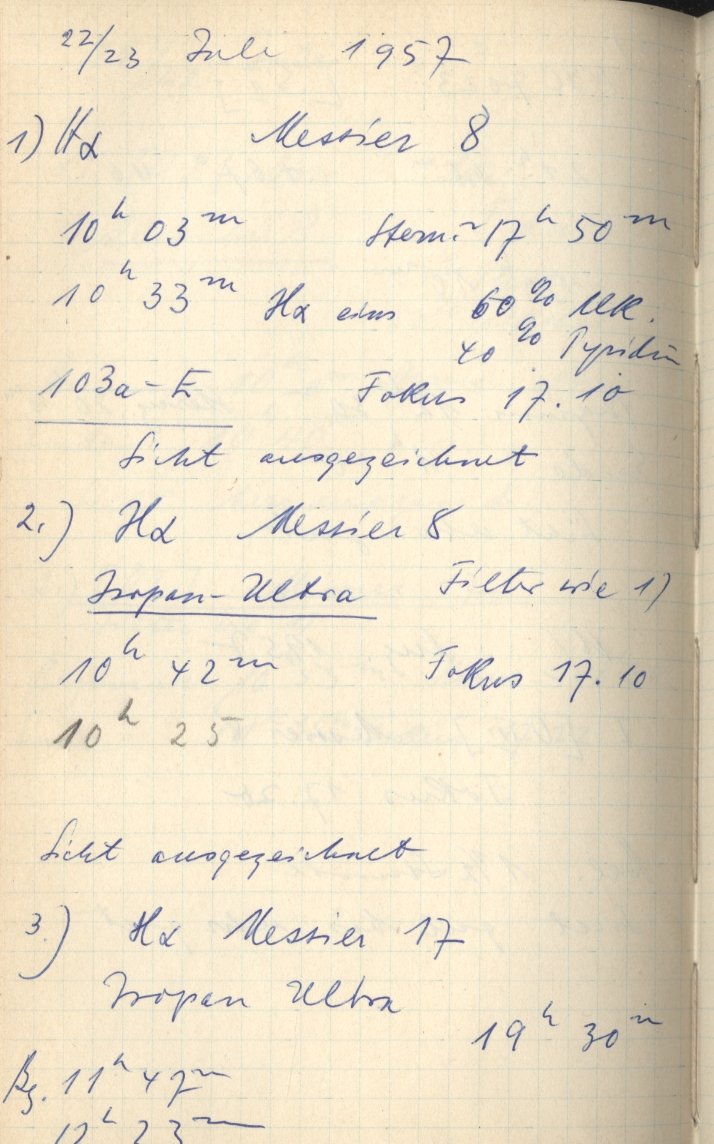 22/23 Juli 1957
1) Hα Messier 8
10h 03m Stern: 17h 50m
10h 33m Hα eins 60% UK.
40% Pyridin
103a-E Fokus 17.10
Sicht ausgezeichnet
2.) Hα Messier 8
Isopan-Ultra Filter wie 1)
10h 42m Fokus 17.10
10h 25
Sicht ausgezeichnet
3.) Hα Messier 17
Isopan Ultra
19h 30m
Bg. 11h 47m
12h 23m